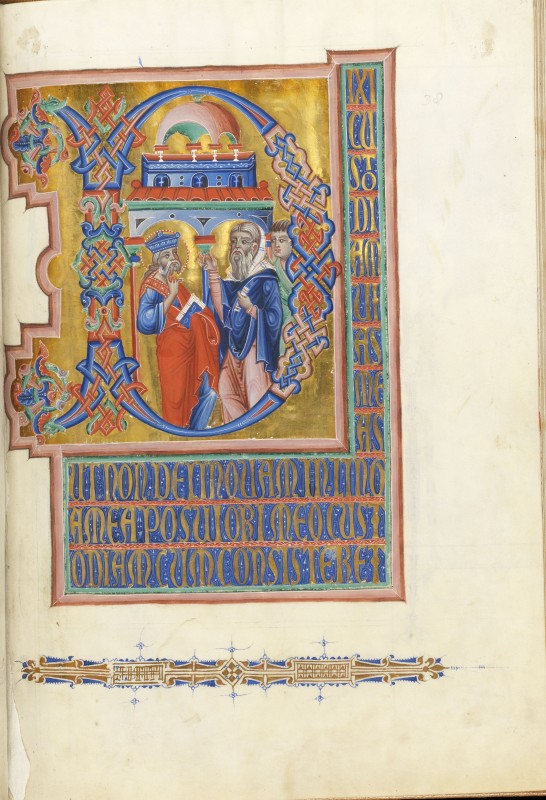 D
IXI
CU
STO
DI
AM
UI
AS
ME
AS
UT NON DELINQUAM IN LINGU
A MEA POSUI ORI MEO CUST
ODIAM CUM CONSISTERET
38